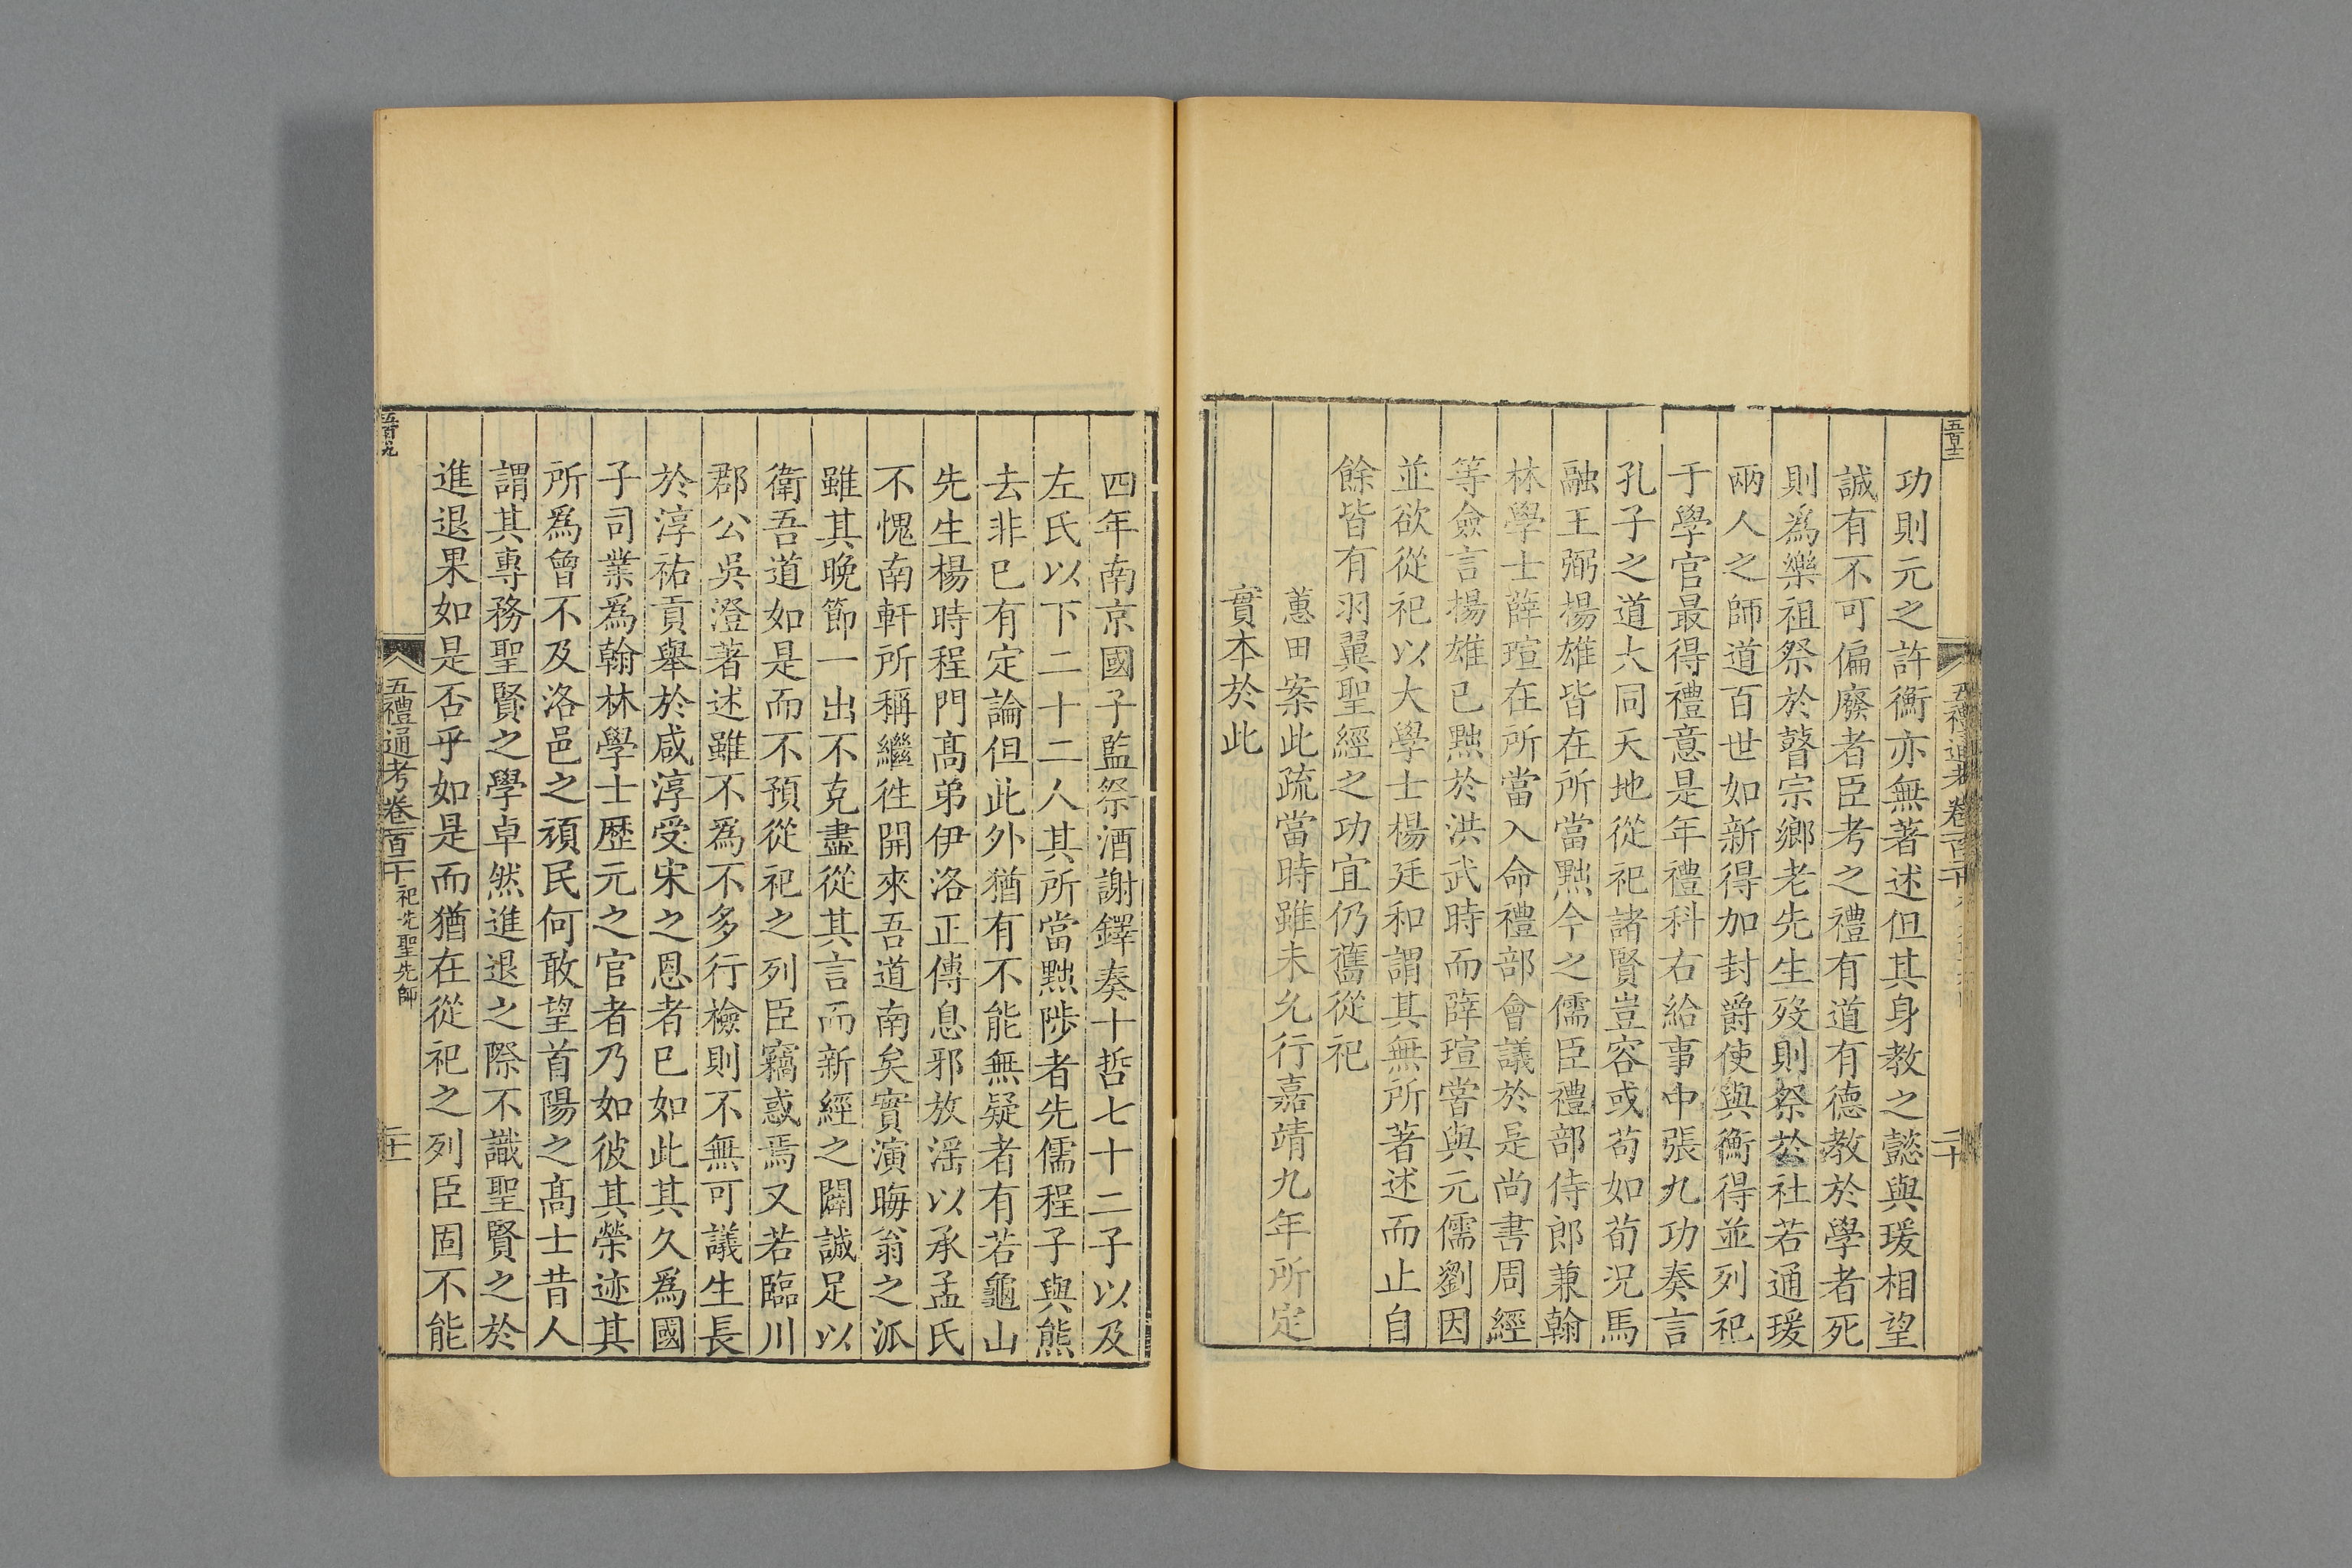 五百十二
五禮通考卷一百二十
二十
功則元之許衡亦無著述但其身教之懿與瑗相望
誠有不可偏廢者臣考之禮有道有德教於學者死
則爲樂祖祭於瞽宗鄉老先生歿則祭於社若通瑗
兩人之師道百世如新得加封爵使與衡得並列祀
于學官最得禮意是年禮科右給事中張九功奏言
孔子之道大同天地從祀諸賢豈容或苟如荀況馬
融王弼楊雄皆在所當黜今之儒臣禮部侍郎兼翰
林學士薛瑄在所當入命禮部會議於是尚書周經
等僉言揚雄已黜於洪武時而薛瑄嘗與元儒劉因
並欲從祀以大學士楊廷和謂其無所著述而止自
餘皆有羽翼聖經之功宜仍舊從祀
蕙田案此疏當時雖未允行嘉靖九年所定
實本於此
四年南京國子監祭酒謝鐸奏十哲七十二子以及
左氏以下二十二人其所當黜陟者先儒程子與熊
去非已有定論但此外猶有不能無疑者有若龜山
先生楊時程門高弟伊洛正傳息邪放淫以承孟氏
不愧南軒所稱繼徃開來吾道南矣實演晦翁之派
雖其晚節一出不克盡從其言而新經之闢誠足以
衛吾道如是而不預從祀之列臣竊惑焉又若臨川
郡公吳澄著述雖不爲不多行檢則不無可議生長
於淳祐貢舉於咸淳受宋之恩者已如此其久爲國
子司業爲翰林學士歷元之官者乃如彼其榮迹其
所爲曾不及洛邑之頑民何敢望首陽之高士昔人
謂其專務聖賢之學卓然進退之際不識聖賢之於
進退果如是否乎如是而猶在從祀之列臣固不能
五百九
五禮通考卷一百二十 祀先聖先師
二十一